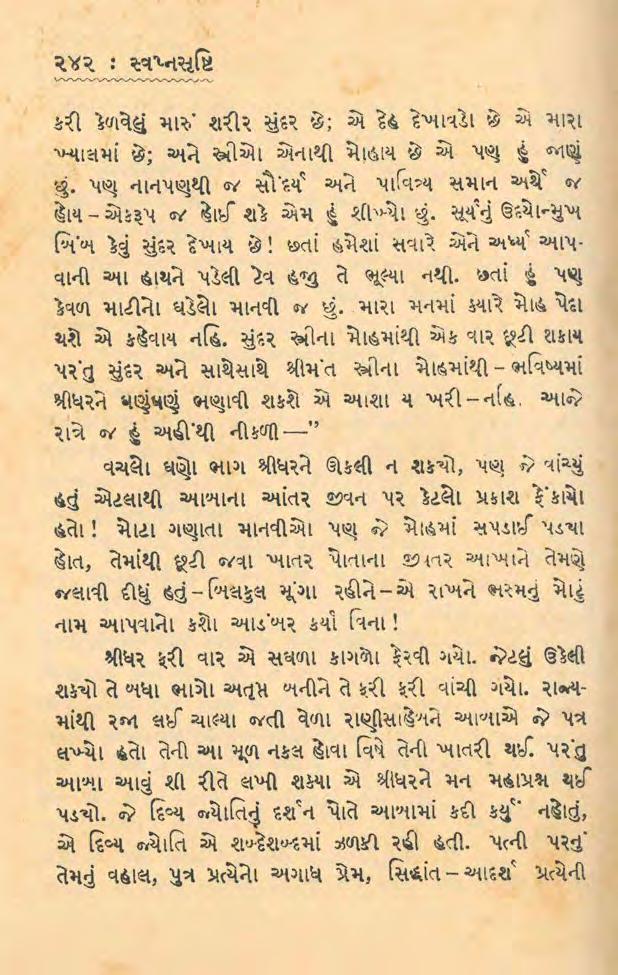 ૨૪૨ : સ્વપ્નસૃષ્ટિ
કરી કેળવેલું મારું શરીર સુંદર છે; એ દેહ દેખાવડો છે એ મારા
ખ્યાલમાં છે; અને સ્ત્રીઓ એનાથી મોહાય છે એ પણ હું જાણું
છું. પણ નાનપણથી જ સૌંદર્ય અને પાવિત્ર્ય સમાન અર્થે જ
હોય – એકરૂપ જ હોઈ શકે એમ હું શીખ્યો છું. સૂર્યનું ઉદયોન્મુખ
બિંબ કેવું સુંદર દેખાય છે! છતાં હમેશાં સવારે એને અર્ધ્ય આપ-
વાની આ હાથને પડેલી ટેવ હજુ તે ભૂલ્યા નથી. છતાં હું પણ
કેવળ માટીનો ઘડેલો માનવી જ છું. મારા મનમાં ક્યારે મોહ પેદા
થશે એ કહેવાય નહિ. સુંદર સ્ત્રીના મોહમાંથી એક વાર છૂટી શકાય
પરંતુ સુંદર અને સાથેસાથે શ્રીમંત સ્ત્રીના મોહમાંથી – ભવિષ્યમાં
શ્રીધરને ઘણુંઘણું ભણાવી શકશે એ આશા ય ખરી – નહિ. આજે
રાત્રે જ હું અહીંથી નીકળી —”
વચલો ઘણો ભાગ શ્રીધરને ઊકલી ન શક્યો, પણ જે વાંચ્યું
હતું એટલાથી આબાના આંતર જીવન પર કેટલો પ્રકાશ ફેંકાયો
હતો! મોટા ગણાતા માનવીઓ પણ જે મોહમાં સપડાઈ પડ્યા
હોત, તેમાંથી છૂટી જવા ખાતર પોતાના જીવતર આખાને તેમણે
જલાવી દીધું હતું – બિલકુલ મૂંગા રહીને – એ રાખને ભસ્મનું મોટું
નામ આપવાનો કશો આડંબર કર્યા વિના!
શ્રીધર ફરી વાર એ સઘળા કાગળો ફેરવી ગયો. જેટલું ઉકેલી
શક્યો તે બધા ભાગો અતૃપ્ત બનીને તે ફરી ફરી વાંચી ગયો. રાજ્ય-
માંથી રજા લઈ ચાલ્યા જતી વેળા રાણીસાહેબને આબાએ જે પત્ર
લખ્યો હતો તેની આ મૂળ નકલ હોવા વિષે તેની ખાતરી થઈ. પરંતુ
આબા આવું શી રીતે લખી શક્યા એ શ્રીધરને મન મહાપ્રશ્ન થઈ
પડ્યો. જે દિવ્ય જ્યોતિનું દર્શન પોતે આબામાં કદી કર્યું નહોતું,
એ દિવ્ય જ્યોતિ એ શબ્દેશબ્દમાં ઝળકી રહી હતી. પત્ની પરનું
તેમનું વહાલ, પુત્ર પ્રત્યેનો અગાધ પ્રેમ, સિદ્ધાંત – આદર્શ પ્રત્યેની